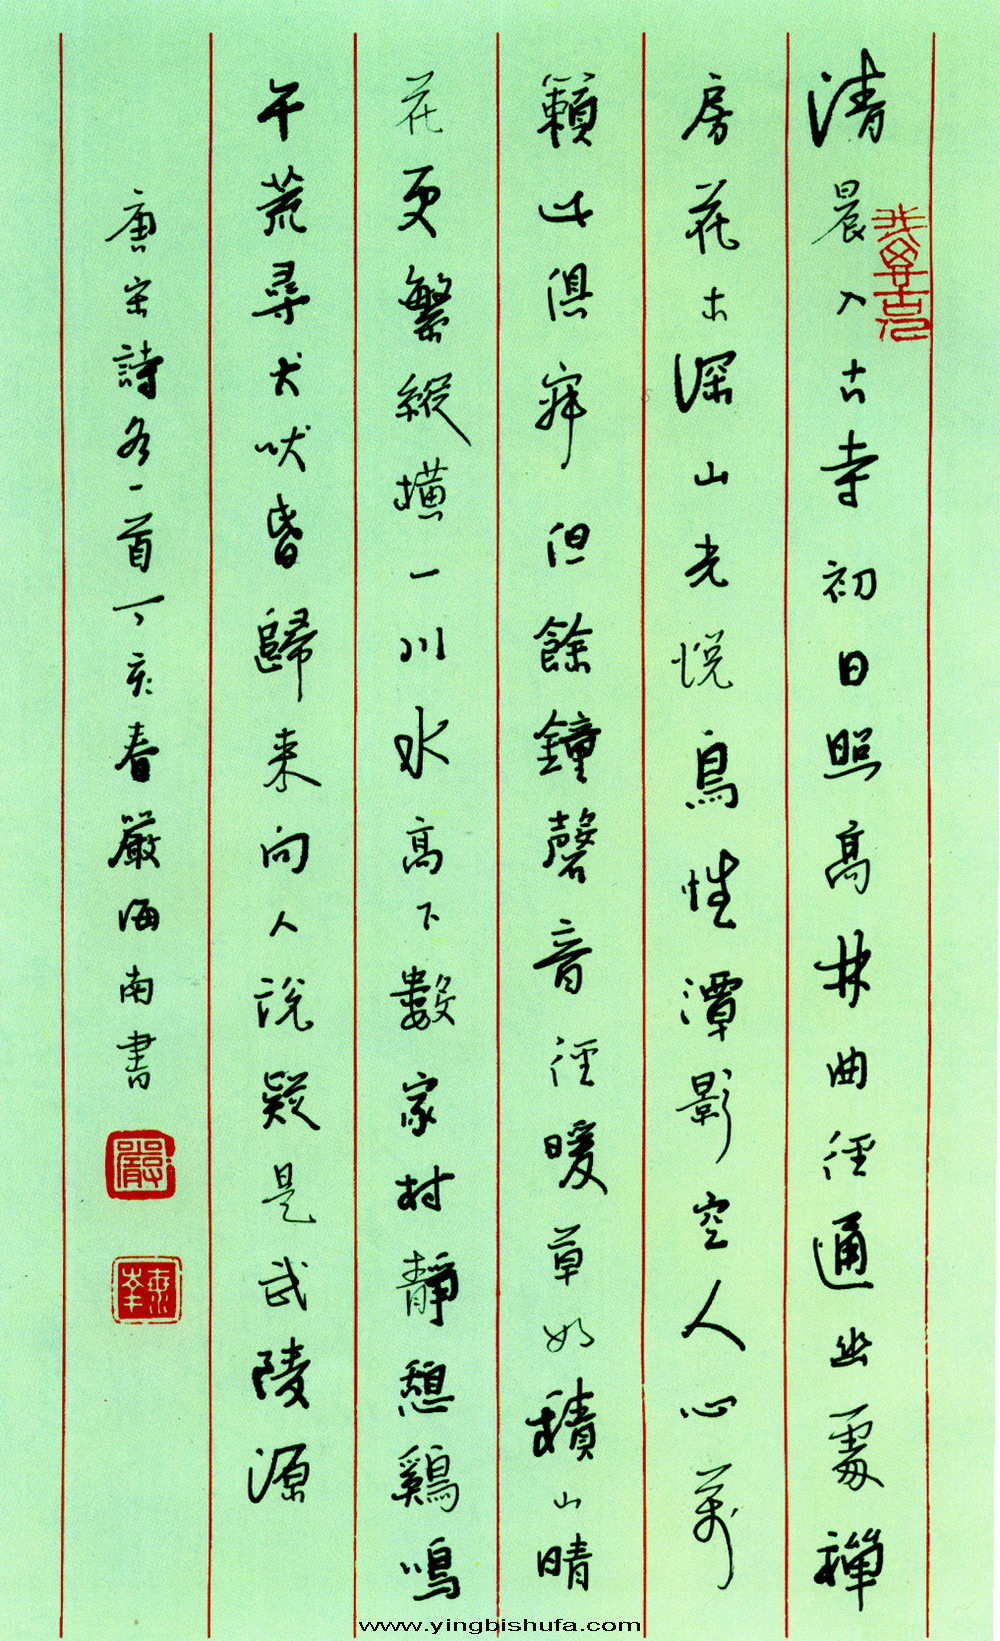 清晨入古寺初日照高林曲徑通幽處禪
房花木深山光悅鳥性潭影空人心萬
籟此俱寂但餘鐘磬音徑暖草如積山晴
花更繁縱橫一川水高下數家村靜憩鷄鳴
午荒尋犬吠昏歸來向人說疑是武陵源
唐宋詩各一首丁亥春嚴海南書
嚴
www.yingbishufa.com